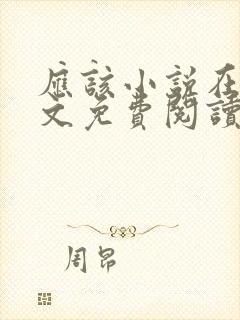 應該小說在
文免費閱讀
周昂